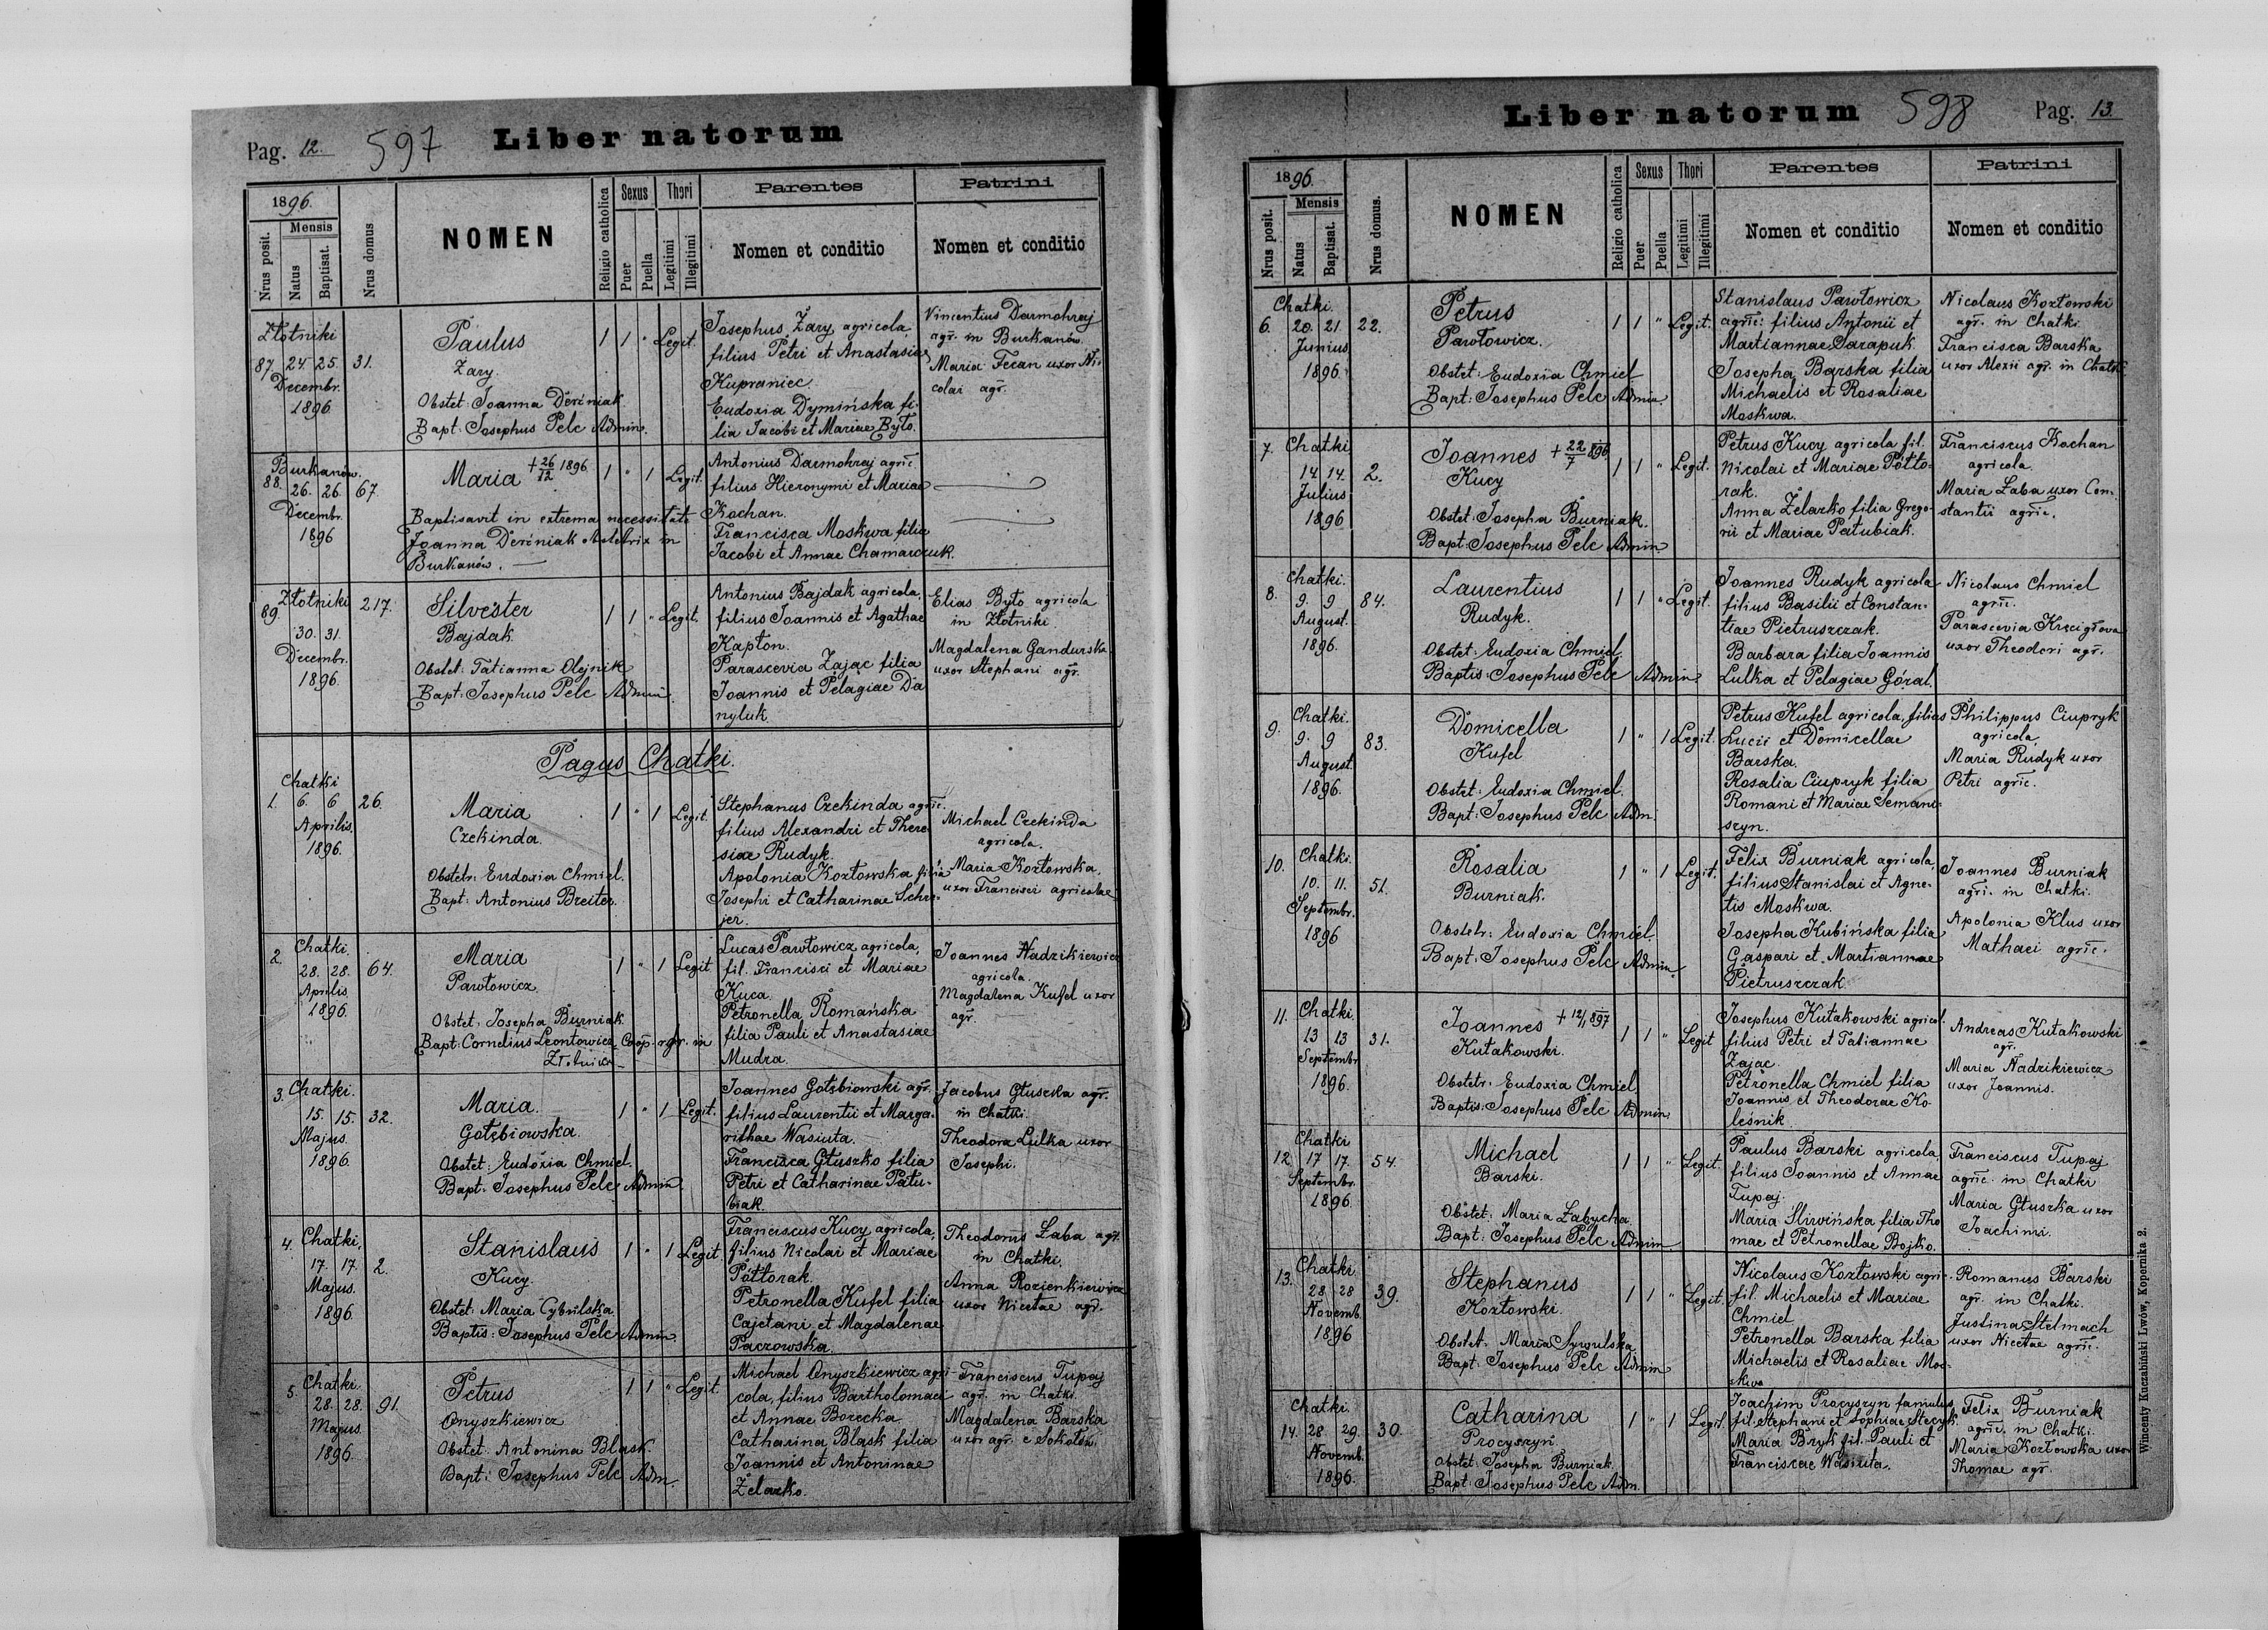 Pag. 12.
597
Liber natorum
1896.
Nrus posit.
Mensis
Natus
Baptisat.
Nrus domus
NOMEN
Religio catholica
Sexus
Puer
Puella
Thori
Legitimi
Illegitimi
Parentes
Nomen et conditio
Patrini
Nomen et conditio
Złotniki
87. 24. 25. 31.
Decembr.
1896
Paulus
Żary.
Obstet: Joanna Dereniak
Bapt: Josephus Pelc Admin.
1 1 " Legit.
Josephus Żary agricola,
filius Petri et Anastasiae
Kupraniec.
Eudoxia Dymińska fi-
lia Jacobi et Mariae Byto.
Vincentius Darmohraj
agr. in Burkanów.
Maria Fecan uxor Ni-
colai agr.
Burkanów.
88. 26. 26. 67.
Decembr.
1896
Maria + 26/12 1896
Baptisavit in extrema necessitate
Joanna Dereniak obstetrix in
Burkanów.
1 " 1 Legit.
Antonius Darmohraj agric.
filius Hieronymi et Mariae
Kochan.
Francisca Moskwa filia
Jacobi et Annae Chamarczuk.
Złotniki
89. 217.
30. 31.
Decembr.
1896.
Silvester
Bajdak
Obstet: Tatianna Olejnik
Bapt: Josephus Pelc Admin.
1 1 " Legit.
Antonius Bajdak agricola,
filius Joannis et Agathae
Kapton.
Parascevia Zając filia
Joannis et Pelagiae Da
nyluk.
Elias Byto agricola
in Złotniki.
Magdalena Gandurska
uxor Stephani agr.
Pagus Chatki.
Chatki
1. 6. 6 26.
Aprilis.
1896.
Maria
Czekinda.
Obstetr: Eudoxia Chmiel.
Bapt: Antonius Breiter.
1 " 1 Legit.
Stephanus Czekinda agric.
filius Alexandri et There-
siae Rudyk.
Apolonia Kozłowska filia
Josephi et Catharinae Schre-
jer.
Michael Czekinda
agricola.
Maria Kozłowska,
uxor Francisci agricolae
Chatki.
2. 28. 28. 64.
Aprilis
1896.
Maria
Pawłowicz.
Obstet: Josepha Burniak.
Bapt: Cornelius Leontowicz Coop. r. gr. in
1 " 1 Legit
Lucas Pawłowicz agricola,
fil. Francisci et Mariae
Kuca.
Petronella Romańska
filia Pauli et Anastasiae
Mudra.
Joannes Nadzikiewicz
agricola.
Magdalena Kufel uxor
agr.
3. Chatki.
15. 15. 32.
Majus.
1896.
Maria.
Gołębiowska.
Obstet: Eudoxia Chmiel.
Bapt: Josephus Pelc Admin.
1 " 1 Legit.
Joannes Gołębiowski agr.
filius Laurentii et Marga-
rithae Wasiuta.
Francisca Głuszko filia
Petri et Catharinae Patu-
biak.
Jacobus Głuszka agr.
in Chatki.
Theodora Lulka uxor
Josephi.
4. Chatki.
17. 17. 2.
Majus.
1896.
Stanislaus
Kucy.
Obstet: Maria Cybulska
Baptis: Josephus Pelc Admin.
1 " 1 Legit
Franciscus Kucy agricola,
filius Nicolai et Mariae
Póttorak.
Petronella Kufel filia
Cajetani et Magdalenae
Paczowska.
Theodorus Łaba agr.
in Chatki.
Anna Rozienkiewicz
uxor Nicetae agr.
5. Chatki.
28. 28. 91.
Majus.
1896.
Petrus
Onyszkiewicz
Obstet: Antonina Blask.
Bapt: Josephus Pelc Adm.
1 1 " Legit.
Michael Onyszkiewicz agri-
cola, filius Bartholomaei
et Annae Borecka.
Catharina Blask filia
Joannis et Antoninae
Żelazko.
Franciscus Tupaj
agr. in Chatki.
Magdalena Barska
uxor agr. e
598
Liber natorum
Pag. 13.
1896.
Nrus posit.
Mensis
Natus
Baptisat.
Nrus domus.
NOMEN
Religio catholica
Sexus
Puer
Puella
Thori
Legitimi
Illegitimi
Parentes
Nomen et conditio
Patrini
Nomen et conditio
Chatki.
6. 20. 21. 22.
Junius
1896.
Petrus
Pawłowicz.
Obstet: Eudoxia Chmiel
Bapt: Josephus Pelc Admin.
1 1 " Legit.
Stanislaus Pawłowicz
agric: filius Antonii et
Martiannae Darapuk.
Josepha Barska filia
Michaelis et Rosaliae
Moskwa.
Nicolaus Kozłowski
agr. in Chatki.
Francisca Barska
uxor Alexii agr. in Chatki
7. Chatki
14. 14. 2.
Julius
1896
Joannes + 22/7 896
Kucy
Obstet: Josepha Burniak.
Bapt: Josephus Pelc Admin
1 1 " Legit.
Petrus Kucy agricola fil.
Nicolai et Mariae Pótto-
rak.
Anna Żelazko filia Grego-
rii et Mariae Patubiak.
Franciscus Kochan
agricola.
Maria Łaba uxor Con-
stantii agric.
Chatki.
8. 9. 9 84.
August.
1896.
Laurentius
Rudyk.
Obstet: Eudoxia Chmiel
Baptis: Josephus Pelc Admin
1 1 " Legit.
Joannes Rudyk agricola
filius Basilii et Constan-
tiae Pietruszczak.
Barbara filia Joannis
Lulka et Pelagiae Góral.
Nicolaus Chmiel
agric.
Parascevia Kręcigłowa
uxor Theodori agr.
Chatki.
9. 9. 9 83.
August.
1896.
Domicella
Kufel
Obstet: Eudoxia Chmiel.
Bapt: Josephus Pelc Adm.
1 " 1 Legit.
Petrus Kufel agricola, filius
Lucii et Domicellae
Barska.
Rosalia Ciupryk filia
Romani et Mariae Semani-
szyn.
Philippus Ciupryk
agricola,
Maria Rudyk uxor
Petri agric.
10. Chatki.
10. 11. 51.
Septembr.
1896
Rosalia
Burniak.
Obstetr: Eudoxia Chmiel.
Bapt: Josephus Pelc Admin.
1 " 1 Legit.
Felix Burniak agricola,
filius Stanislai et Agne-
tis Moskwa.
Josepha Kubińska filia
Gaspari et Martiannae
Pietruszczak
Joannes Burniak
agri. in Chatki.
Apolonia Klus uxor
Mathaei agric.
11. Chatki.
13 13 31.
Septembr
1896.
Joannes + 12/1 897
Kutakowski.
Obstetr: Eudoxia Chmiel
Baptis: Josephus Pelc Admin.
1 1 " Legit
Josephus Kutakowski agricol.
filius Petri et Tatiannae
Zając
Petronella Chmiel filia
Joannis et Theodorae Ko-
leśnik.
Andreas Kutakowski
agr.
Maria Nadzikiewicz
uxor Joannis.
Chatki
12. 17 17. 54.
Septembr.
1896
Michael
Barski.
Obstet: Maria Łabucha
Bapt: Josephus Pelc Admin.
1 1 " Legit.
Paulus Barski agricola,
filius Joannis et Annae
Tupaj.
Maria Sliwińska filia Tho
mae et Petronellae Bojko.
Franciscus Tupaj
agric. in Chatki
Maria Głuszka uxor
Joachimi.
Chatki
13. 28 28 39.
Novemb.
1896
Stephanus
Kozłowski.
Obstet: Maria Sywulska.
Bapt: Josephus Pelc Admin
1 1 " Legit.
Nicolaus Kozłowski agri-
fil. Michaelis et Mariae
Chmiel
Petronella Barska filia
Michaelis et Rosaliae Mos-
kwa
Romanus Barski
agr. in Chatki.
Justina Stelmach
uxor Nicetae agric.
Chatki
14. 28 29. 30.
Novemb.
1896.
Catharina
Procyszyn
Obstet: Josepha Burniak
Bapt: Josephus Pelc Adm.
1 " 1 Legit.
Joachim Procyszyn famulus
fil. Stephani et Sophiae Stecyk.
Maria Bryk fil. Pauli et
Franciscae Wasiuta.
Felix Burniak
agric. in Chatki.
Maria Kozłowska uxor
Thomae agr.
Wincenty Kuczabiński Lwów, Kopernika 2.